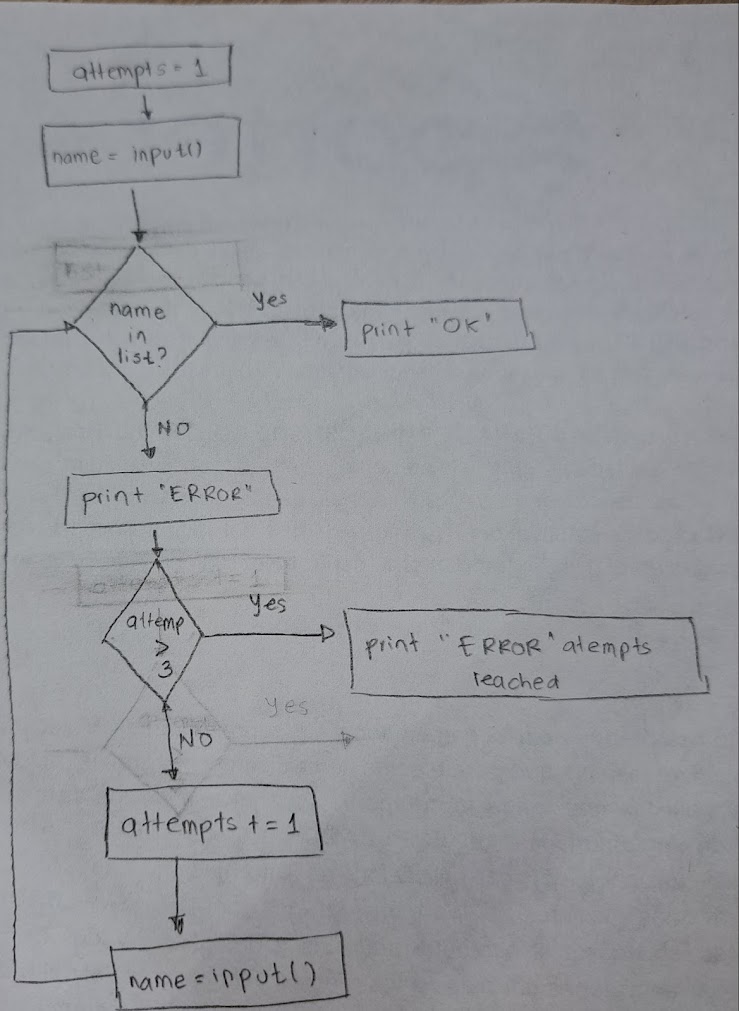 attempts = 1
name = input()
name
in
list?
Yes
print "OK"
NO
print "ERROR"
attemp
>
3
Yes
print "ERROR" atempts
reached
Yes
NO
attempts += 1
name = input()